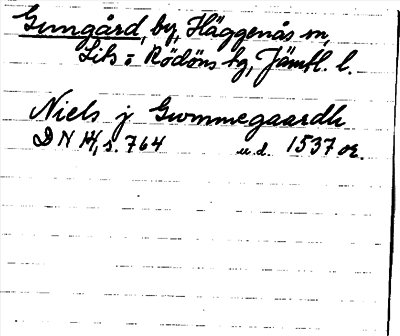 Gungård, by, Häggenås sn,
Lits o Rödöns tg, Jämtl. l.
Niels j Gwnmegaardh
D N 14, s. 764 u.d. 1537 or.